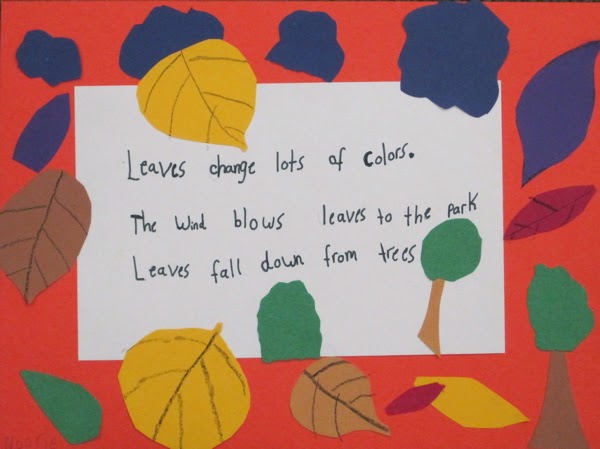 Leaves change lots of colors.
The wind blows leaves to the park
Leaves fall down from trees